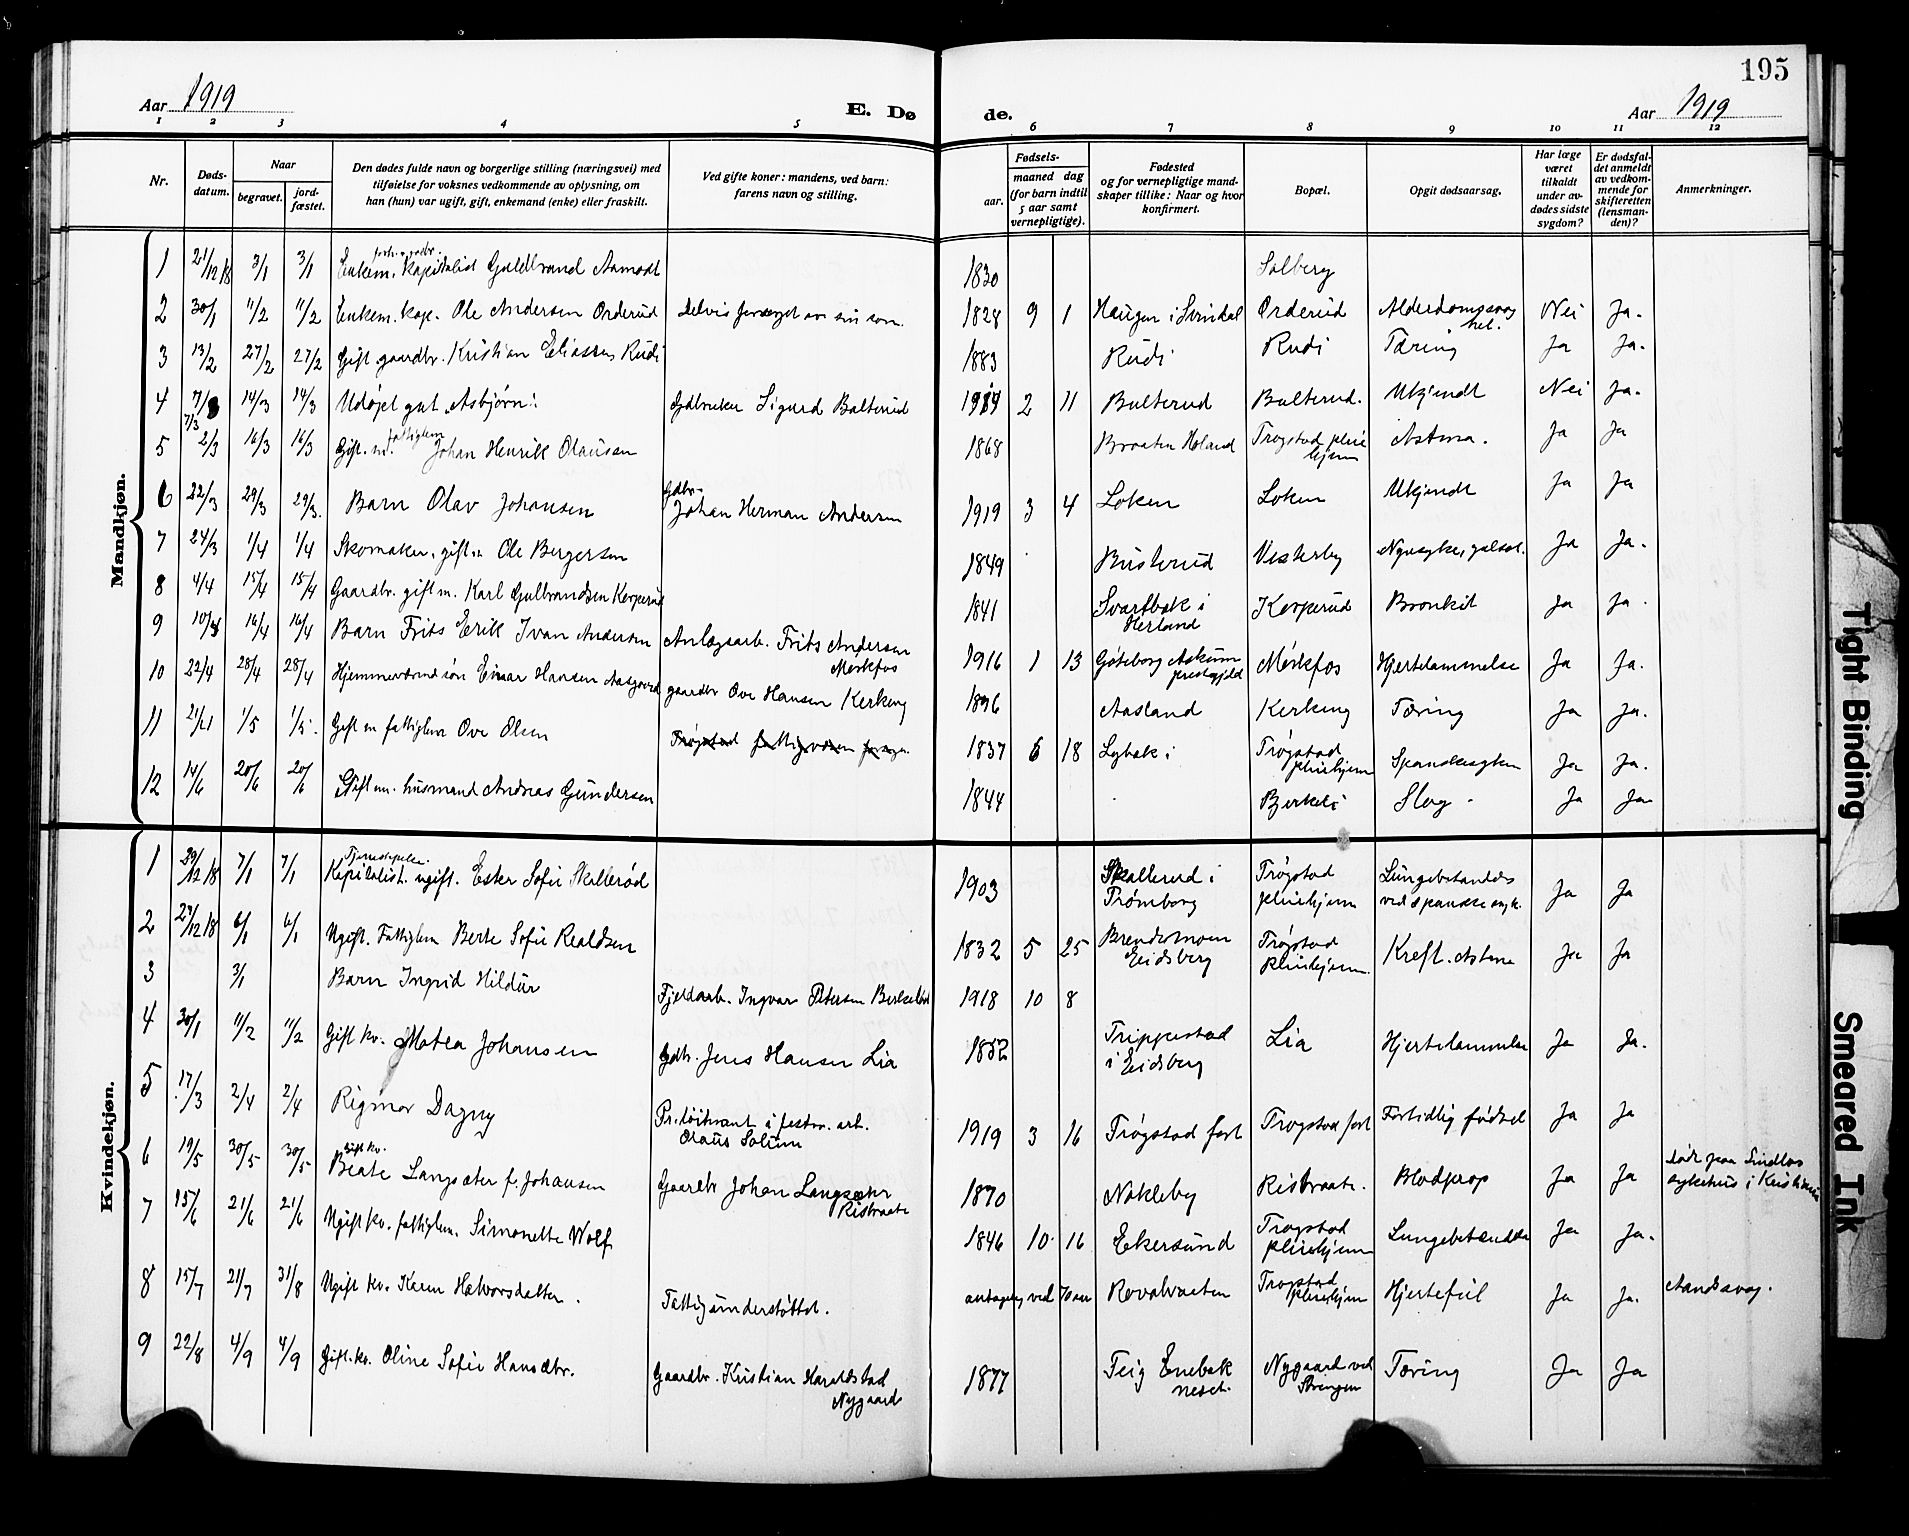 195
Aar 1919 E. Dø de. Aar 1919
1 2 3 4 5 6 7 8 9 10 11 12
Nr. Døds-datum. Naar begravet. jord-fæstet. Den dødes fulde navn og borgerlige stilling (næringsvei) med tilføielse for voksnes vedkommende av oplysning, om han (hun) var ugift, gift, enkemand (enke) eller fraskilt. Ved gifte koner: mandens, ved barn: farens navn og stilling. Fødsels- aar. maaned dag (for barn indtil 5 aar samt vernepligtige). Fødested og for vernepligtige mand-skaper tillike: Naar og hvor konfirmert. Bopæl. Opgit dødsaarsag. Har læge været tilkaldt under av-dødes sidste sygdom? Er dødsfal-det anmeldt av vedkom-mende for skifteretten (lensman-den)? Anmerkninger.
Mandkjøn.
1 21/12 18 3/1 3/1 Enkem. kapitalist Guldbrand Aamodt 1830 Solberg
2 30/1 11/2 11/2 Enkem. kap. Ole Andersen Orderud Delvis forsørget av sin søn. 1828 9 1 Haugen i Svindal Orderud Alderdomssvaghet. Nei Ja.
3 13/2 27/2 27/2 Gift gaardbr. Kristian Eliassen Rudi 1883 Rudi Rudi Tæring Ja Ja.
4 7/3 7/3 14/3 14/3 Udøpt gut "Asbjørn" Gdbruker Sigurd Bulterud 1919 2 11 Bulterud Bulterud. Ukjendt Nei Ja.
5 2/3 16/3 16/3 Gift. m. fattiglem Johan Henrik Olaussen 1868 Braaten Høland Trøgstad pleiehjem Astma. Ja Ja
6 22/3 29/3 29/3. Barn Olav Johansen Gdbr. Johan Herman Andersen 1919 3 4 Løken Løken Ukjendt Ja Ja
7 24/3 1/4 1/4 Skomaker, gift m. Ole Bergersen 1849 Busterud Vesterby Nyresyke, Ja Ja.
8 4/4 15/4 15/4 Gaardbr. gift m. Karl Gulbrandsen Kerperud 1841 Svartbæk i Herland Kerperud Bronkit Ja Ja.
9 10/4 16/4 16/4 Barn Frits Erik Ivan Andersen Anlægsarb. Frits Andersen Mørkfos 1916 1 13 Gøteborg Askum prestegjeld Mørkfos Hjertelammelse Ja Ja.
10 22/4 28/4 28/4 Hjemmeværende søn Einar Hansen Aasgaard gaardbr Ove Hansen Kerkeng 1896 Aasland Kerkeng Tæring Ja Ja.
11 1/5 1/5. Gift m fattiglem Ove Olsen Trøgstad fattigvæsen forsørg. 1837 6 18 Lybæk i Trøgstad pleiehjem Spanskesyken Ja Ja.
12 14/6 20/6 20/6 Gift m. husmand Andreas Gundersen 1844 Bjerkeli Slag Ja Ja
Kvindekjøn.
1 29/12 18 7/1 7/1 Kapitalist. ugift. Ester Sofie Skallerød 1903 Skallerud i Trømborg Trøgstad pleiehjem Lungebetændels ved spanske syk. Ja Ja
2 27/12 18 6/1 6/1 Ugift. Fattiglem Berte Sofie Realdsen 1832 5 25 Brendemoen Eidsberg Trøgstad pleiehjem. Kreft. Ja Ja
3 3/1 Barn Ingrid Hildur Fjeldarb. Ingvar Petersen 1918 10 8
4 30/1 11/2 11/2 Gift kv. Matea Johansen Gdbr. Jens Hansen Lia 1852 Trippestad i Eidsberg Lia Hjertelammelse Ja Ja.
5 17/3 2/4 2/4 Rigmor Dagny Pr. løitnant i festn. art. Olaus Solum 1919 3 16 Trøgstad fort Trøgstad fort Fortidlig fødsel Ja Ja
6 19/5 30/5 30/5 gift kv. Beate Langsæter f. Johansen Gaardbr Johan Langsæter Ristvaate 1870 Nakleby Ristvaate. Blodprop Ja Ja død paa Lindlos sykehus i Kristiania
7 15/6 21/6 21/6 Ugift kv. fattiglem. Simonette Wolf 1846 10. 16 Ekersund Trøgstad pleiehjem Lungebetændelse Ja Ja.
8 15/7 21/7 31/8 Ugift kv. Karen Halvorsdatter. Fattigunderstøttet. antagelig ved 70 aar Trøgstad pleiehjem Hjertefeil Ja Ja. Aandssvag.
9 22/8 4/9 4/9 Gift. kv. Oline Sofie Hansdtr. Gaardbr. Kristian Haraldstad Nygaard 1877 Teig Enebak Nygaard ved Tæring Ja Ja
Tight Binding
Smeared Ink